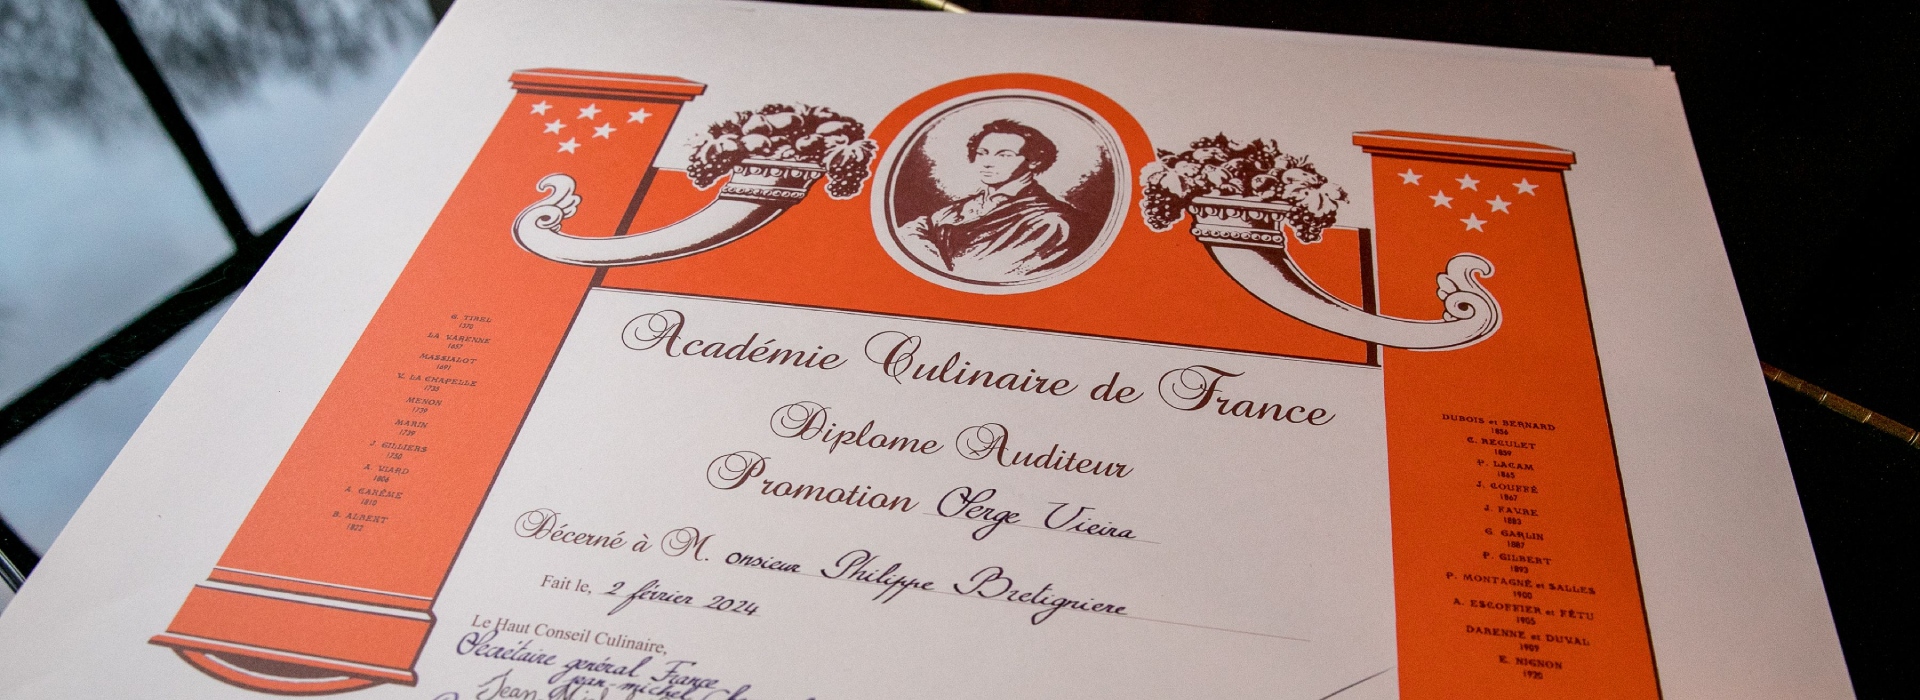 G. TIREL
1370
LA VARENNE
1657
MASSIALOT
1691
V. LA CHAPELLE
1735
MENON
1739
MARIN
1739
J. GILLIERS
1750
A. VIARD
1806
A. CARÊME
1810
B. ALBERT
1822
Académie Culinaire de France
Diplome Auditeur
Promotion Serge Vieira
Décerné à M. onsieur Philippe Bretigniere
Fait le, 2 février 2024
Le Haut Conseil Culinaire,
Secrétaire général France
jean-michel
Jean-Mich
DUBOIS et BERNARD
1856
C. RECULET
1859
P. LACAM
1865
J. GOUFFÉ
1867
J. FAVRE
1883
G. GARLIN
1887
P. GILBERT
1893
P. MONTAGNÉ et SALLES
1900
A. ESCOFFIER et FÉTU
1905
DARENNE et DUVAL
1909
E. NIGNON
1920